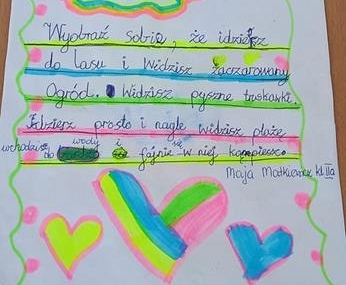 Wyobraź sobie, że idziesz
do lasu i widzisz zaczarowany
Ogród. Widzisz pyszne truskawki.
Idziesz prosto i nagle widzisz plażę
wchodzisz do wody i
fajnie się w niej kąpiesz.
Maja kl IIa